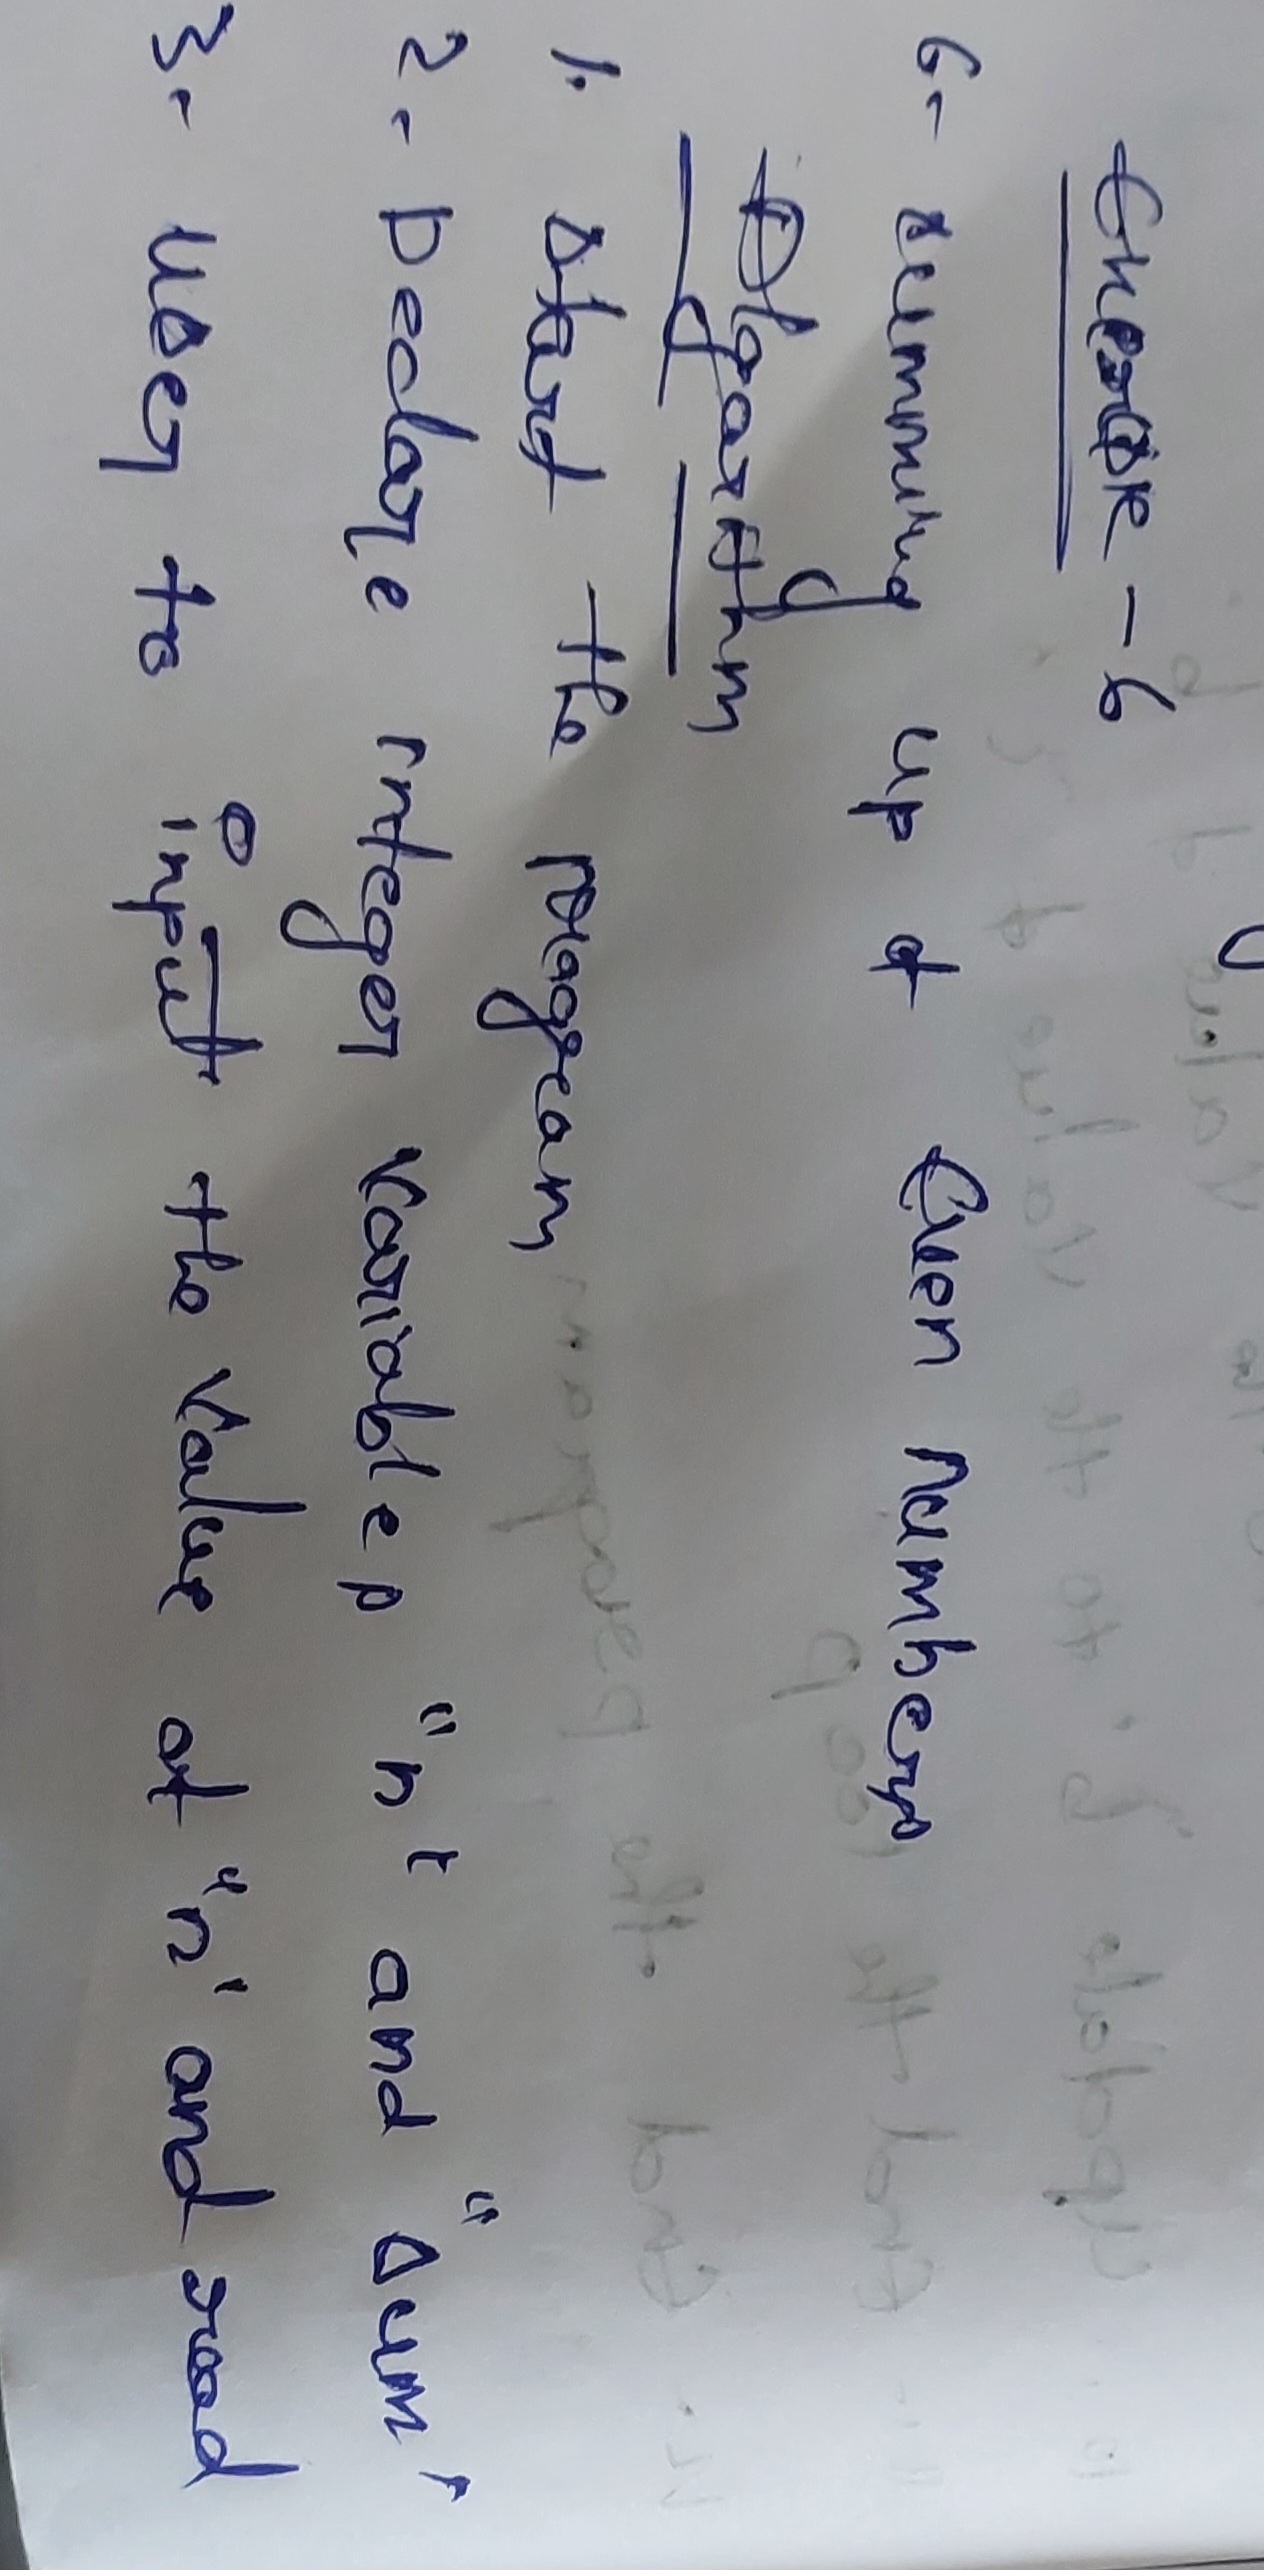 - 6
6- summing up of Even numbers
Algorithm
1. start the program
2- Declare integer variables "n' and "sum'
3- user to input the value of "n' and read